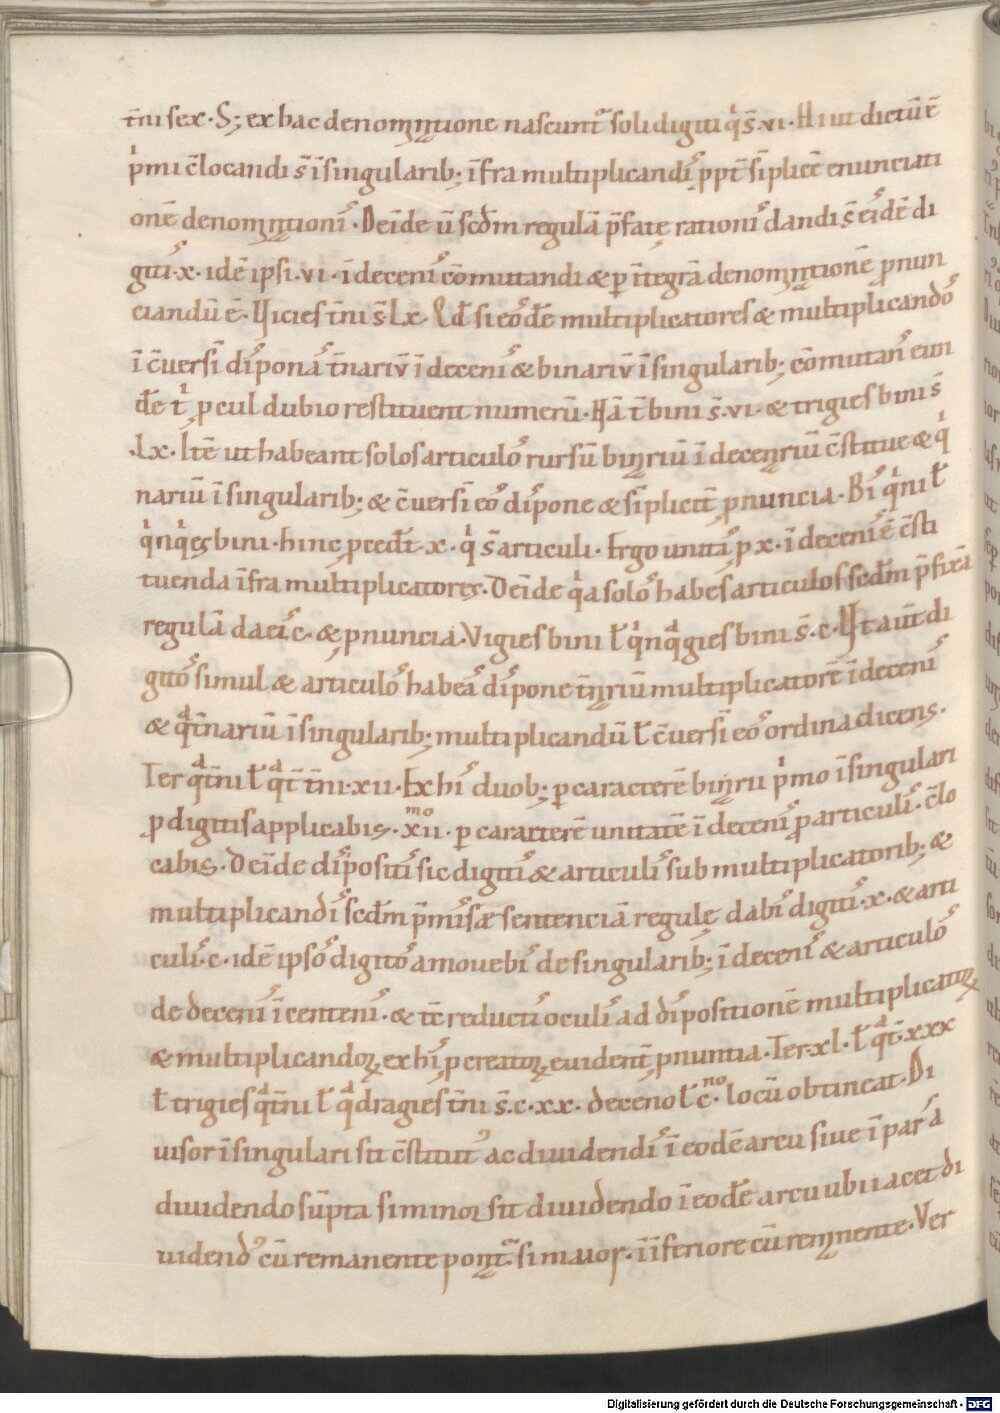 t̄ni sex. S; ex hac denom̅n̅tione nascunt᷒ soli digiti q̍ s̄ .vi. Hi ut dictū ē
p̍mi c̄locandi s̄ ī singularib; īfra multiplicandꝭ ꝓpt̄ s̄plicē enunciati
onē denom̅n̅tionꝭ. Deīde ū scd̄m regulā p̄fatę rationꝭ dandi s̄ eidē di
gitiꝭ .x. idē ipsi .vi. ī decenꝭ cōmutandi & ꝑ ītegrā denom̅n̅tionē ꝓnun
ciandū ē. Vicies t̄ni s̄ .lx. Qd̄ si eosdē multiplicatores & multiplicandos
ī c̄versū dꝭponas t̄nariū ī decenꝭ & binariū ī singularib; cōmutans eun
dē t̍ ꝓcul dubio restituent numerū. Nā t̄ bini s̄ .vi. & trigies bini s̄
.lx. Itē ut habeant solos articulos rursū bin̅riū ī decen̅riū c̄stitue & q̍
nariū ī singularib; & c̄versī eos dꝭpone & sīplicit̄ ꝓnuncia. Bis q̍ni ł
q̍nq̍es bini. hinc ꝓced̄t .x. q̍ s̄ articuli. Ergo unitas ꝑ x. ī decenꝭ ē c̄sti
tuenda īfra multiplicatores. Deīde q̍a solos habes articulos scd̄m p̄fixā
regulā da eis .c. & ꝓnuncia. Vigies bini ł q̍nq̍gies bini s̄ .c. Vt aūt di
gitos simul & articulos habeas dꝭpone t̄n̅riū multiplicatorē ī decenꝭ
& q̄t̄nariū ī singularib; multiplicandū ł c̄versī eos ordina dicens.
Ter q̄t̄ni ł q̄t̄ t̄ni .xii. Ex hꝭ duob; ꝑ caracterē bin̅rii p̍mo ī singulari
ꝓ digitis applicabis. xiimo ꝑ caracterē unitatē ī decenꝭ ꝓ articulꝭ. c̄lo
cabis. Deīde dꝭpositꝭ sic digitꝭ & articulꝭ sub multiplicatorib; &
multiplicandꝭ scd̄m p̄mꝭsæ sentenciā regulę dabꝭ digitꝭ .x. & arti
culꝭ .c. idē ipsos digitos amovebꝭ de singularib; ī decenꝭ & articulos
de decenꝭ ī centenꝭ. & tc̄ reductꝭ oculꝭ ad dꝭpositionē multiplicatoꝝ
& multiplicandoꝝ, ex hꝭ ꝓcreatoꝝ evident̄ ꝓnuntia. Ter .xl. ł q̄t̄ .xxx
ł trigies q̄t̄ni ł q̄dragies t̄ni s̄ .c.xx. deceno ł c.no locū obtineat. Di
visor ī singulari sit c̄stitutꝰ ac dividendꝭ ī eodē arcu sive ī pars̄ a
dividendo sūpta si minor sit dividendo ī eodē arcu ubi iacet di
videndꝰ cū remanente ponet᷒. si maior. ī īferiore cū rem̅nente. Ver
Digitalisierung gefördert durch die Deutsche Forschungsgemeinschaft - DFG